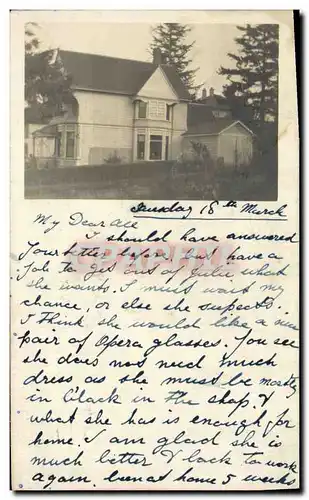 Tuesday 18th March
My Dear Alce
I should have answered
Your letter before but have a
Job to get out of Julie what
She wants. I must wait my
chance, or else she suspects.
I think she would like a nice
pair of Opera glasses. You see
she does not need much
dress as she must be mostly
in black in the shop. &
what she has is enough for
home. I am glad she is
much better & back to work
again. been at home 5 weeks